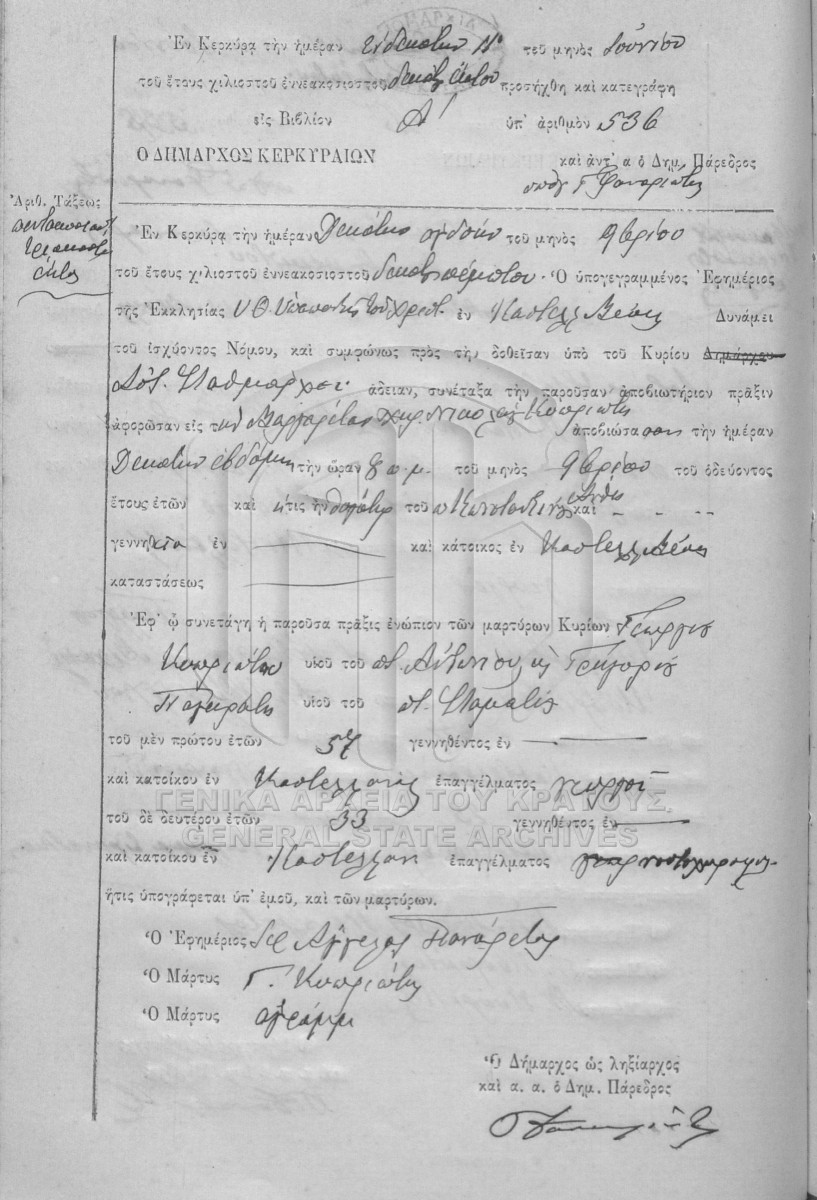 Ἐν Κερκύρᾳ τὴν ἡμέραν ἑνδεκάτην 11 τοῦ μηνὸς Ἰουνίου
τοῦ ἔτους χιλιοστοῦ ἐννεακοσιοστοῦ δεκάτου ἕκτου προσήχθη καὶ κατεγράφη
εἰς Βιβλίον Α' ὑπ' ἀριθμὸν 536
Ο ΔΗΜΑΡΧΟΣ ΚΕΡΚΥΡΑΙΩΝ
καὶ ἀντ' α ὁ Δημ. Πάρεδρος
Ἀριθ. Τάξεως
πεντακοσιοστ
τριακοστ
ἕκτη
Ἐν Κερκύρᾳ τὴν ἡμέραν Δεκάτην ὀγδόην τοῦ μηνὸς 9βρίου
τοῦ ἔτους χιλιοστοῦ ἐννεακοσιοστοῦ δεκάτου πέμπτου Ὁ ὑπογεγραμμένος Ἐφημέριος
τῆς Ἐκκλησίας Υ.Θ. τοῦ Χριστ. ἐν Καστελλ. Μέσης Δυνάμει
τοῦ ἰσχύοντος Νόμου, καὶ συμφώνως πρὸς τὴν δοθεῖσαν ὑπὸ τοῦ Κυρίου Δημάρχου
Ἀστ. Σταθμάρχου ἄδειαν, συνέταξα τὴν παροῦσαν ἀποβιωτήριον πρᾶξιν
ἀφορῶσαν εἰς τὴν Μαργαρίταν χηρ. Νικολάου Κυπριώτη ἀποβιώσασαν τὴν ἡμέραν
Δεκάτην ἑβδόμην τὴν ὥραν 8 π.μ. τοῦ μηνὸς 9βρίου τοῦ ὁδεύοντος
ἔτους ἐτῶν καὶ ἥτις ἦν θυγάτηρ τοῦ π. Κωνσταντίνου καὶ - - -
γεννηθεῖσα ἐν καὶ κάτοικος ἐν Καστελλ. Μέσης
καταστάσεως
Ἐφ' ᾧ συνετάγη ἡ παροῦσα πρᾶξις ἐνώπιον τῶν μαρτύρων Κυρίων Γεωργίου
Κυπριώτου υἱοῦ τοῦ ποτ. Ἀντωνίου κ Γρηγορίου
Παγκράτη υἱοῦ τοῦ ποτ. Σταμάτη
τοῦ μὲν πρώτου ἐτῶν 57 γεννηθέντος ἐν
καὶ κατοίκου ἐν Καστελλάνους ἐπαγγέλματος γεωργοῦ
ΓΕΝΙΚΑ ΑΡΧΕΙΑ ΤΟΥ ΚΡΑΤΟΥΣ
τοῦ δὲ δευτέρου ἐτῶν 33 γεννηθέντος ἐν
GENERAL STATE ARCHIVES
καὶ κατοίκου ἐν Καστελλάν ἐπαγγέλματος
ἥτις ὑπογράφεται ὑπ' ἐμοῦ, καὶ τῶν μαρτύρων.
Ὁ Ἐφημέριος Ἄγγελος Πανάρετος
Ὁ Μάρτυς Γ. Κυπριώτης
Ὁ Μάρτυς ἀγράμμ
Ὁ Δήμαρχος ὡς ληξίαρχος
καὶ α. α. ὁ Δημ. Πάρεδρος